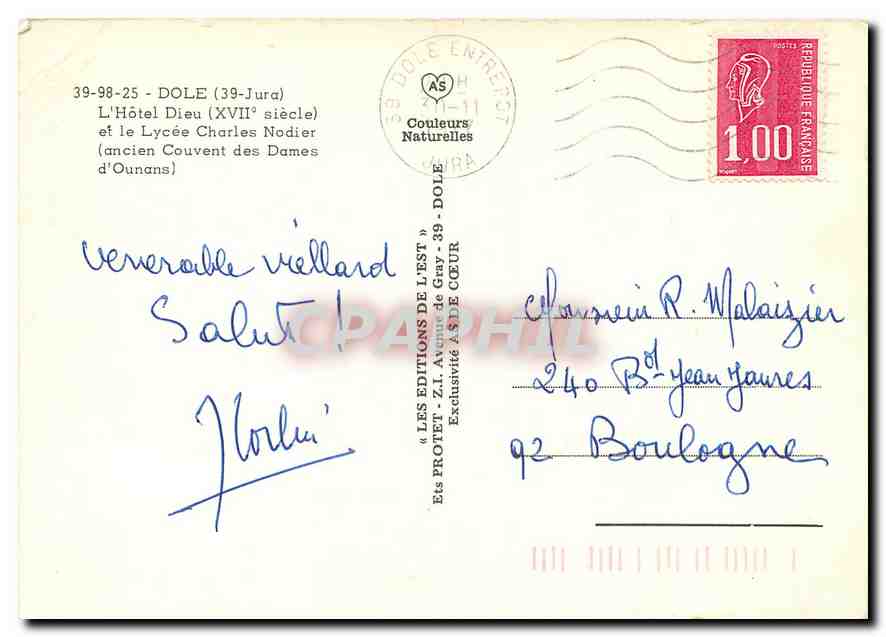 39-98-25 - DOLE (39-Jura)
L'Hôtel Dieu (XVII° siècle)
et le Lycée Charles Nodier
(ancien Couvent des Dames
d'Ounans)
39 DOLE ENTREPOT
JURA
AS
Couleurs
Naturelles
POSTES
REPUBLIQUE FRANÇAISE
1,00
venerable viellard
Salut !
« LES EDITIONS DE L'EST »
Ets PROTET - Z.I. Avenue de Gray - 39 - DOLE
Exclusivité AS DE CŒUR
Monsieur R. Malaizier
240 Bd Jean Jaures
92 Boulogne
CPAPHIL